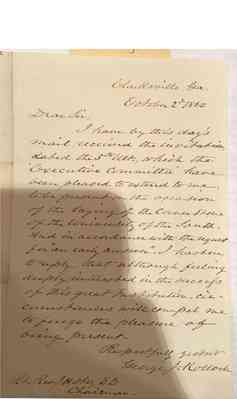 Clarksville, Geo.
October 2d 1860
Dear Sir,
I have by this day's
mail received the invitation
dated the 5th Ult, which the
Executive Committee have
been pleased to extend to me,
to be present on the occasion
of the laying of the Corner Stone
of the University of the South.
And in accordance with the request
for "an early answer" I hasten
to reply that although feeling
deeply interested in the success
of this great Institution, cir-
cumstances will compel me
to forego the pleasure of
being present
Respectfully
George J. Kollock
Rt. Rev.
Chairman